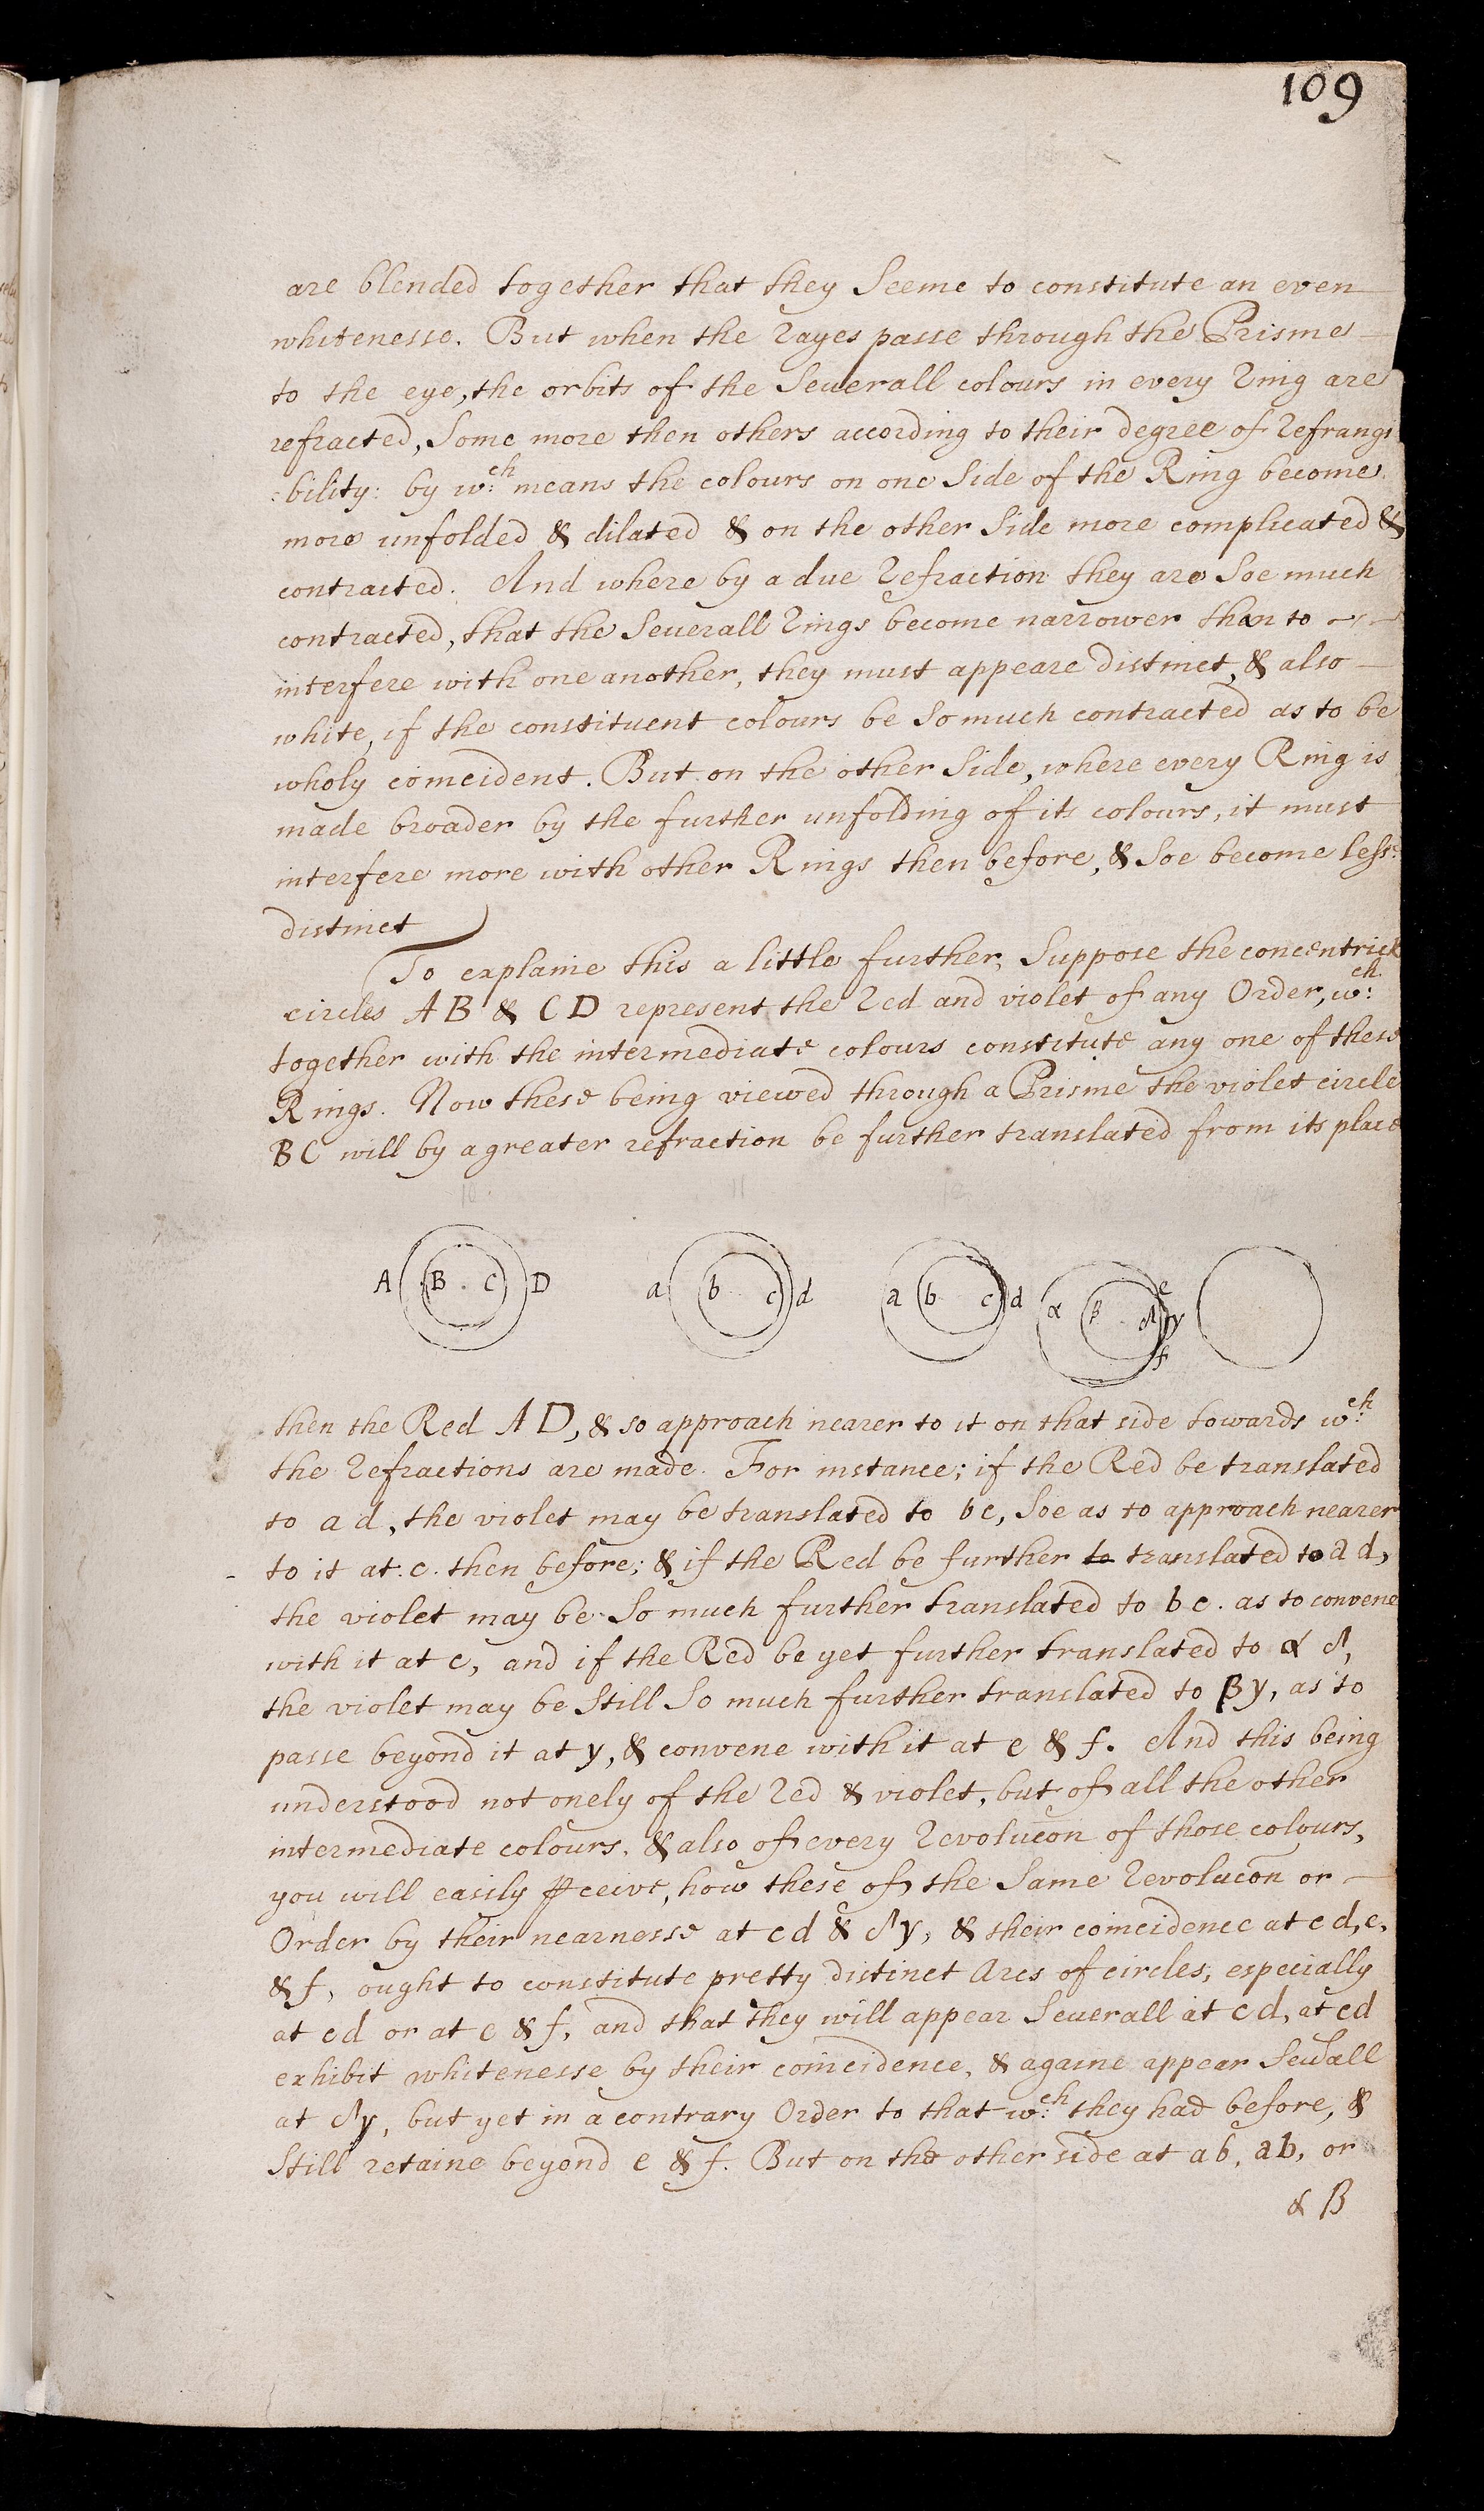 109
are blended together that they Seeme to constitute an even
whitenesse. But when the rayes passe through the Prisme
to the eye, the orbits of the Severall colours in every ring are
refracted, Some more then others according to their degree of refrangi
:bility: by w:ch means the colours on one Side of the Ring become
more unfolded & dilated & on the other Side more complicated &
contracted. And where by a due refraction they are Soe much
contracted, that the Severall rings become narrower than to
interfere with one another, they must appeare distinct, & also
white, if the constituent colours be So much contracted as to be
wholy coincident. But on the other Side, where every Ring is
made broader by the further unfolding of its colours, it must
interfere more with other Rings then before, & Soe become less:
distinct
To explaine this a little further, Suppose the concentrick
circles AB & CD represent the red and violet of any Order, w:ch
together with the intermediate colours constitute any one of these
Rings. Now these being viewed through a Prisme the violet circle
BC will by a greater refraction be further translated from its place
10. 11 12 13 14
A B C D a b c d a b c d α β δ γ e f
then the Red AD, & so approach nearer to it on that side towards w:ch
the refractions are made. For instance; if the Red be translated
to a d, the violet may be translated to bc, Soe as to approach nearer
to it at .c. then before; & if the Red be further to translated to a d,
the violet may be So much further translated to b c. as to convene
with it at c, and if the Red be yet further translated to α δ,
the violet may be Still So much further translated to βγ, as to
passe beyond it at γ, & convene with it at e & f. And this being
understood not onely of the red & violet, but of all the other
intermediate colours, & also of every revolucõn of those colours,
you will easily ꝑceive, how these of the Same revolucõn or
Order by their nearnesse at cd & δγ, & their coincidence at cd, e,
& f, ought to constitute pretty distinct Arcs of circles, especially
at cd or at e & f, and that they will appear Severall at cd, at cd
exhibit whitenesse by their coincidence, & againe appear Sevall
at δγ, but yet in a contrary Order to that w:ch they had before, &
Still retaine beyond e & f. But on the other side at ab, ab, or
α β